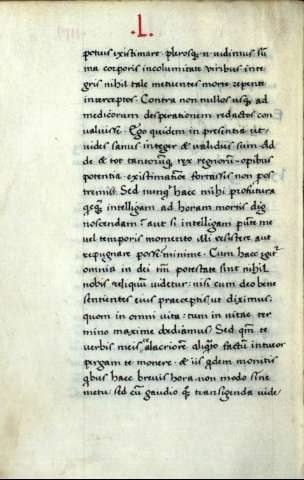 .L.
potius existimare. plerosq. n. uidimus su͞
ma corporis incolumitate uiribus inte
gris nihil tale metuentes morte repente
interceptos. Contra non nullos usq. ad
medicorum desperationem redactos con
ualuisse. Ego quidem in presentia ut
uides sanus integer & ualidus sum. Ad
de & tot tantorumq. rex regnorum opibus
potentia existimatione fortassis non pos
tremis. Sed nunq. haec mihi profutura
intelligam ad horam mortis dig
noscendam: aut si intelligam
uel temporis momento illi resistere aut
repugnare posse minime. Cum haec igit͛
omnia in dei sint potestate sine nihil
nobis reliquum uidetur: nisi cum deo bene
sentientes eius praeceptis ut diximus,
quom in omni uita: tum in uitae ter
mino maxime dedamus. Sed qm̄ te
uerbis meis alacriorem aliq͛to factu͞ intueor
pergam te monere. & iis q͛dem monitis
q͛bus haec breuis hora non modo sine
metu: sed cu͞ gaudio transigenda uide